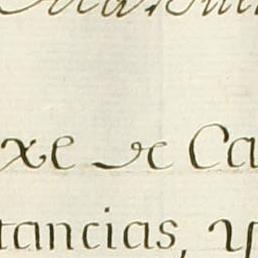 xe de Ca
tancias, y